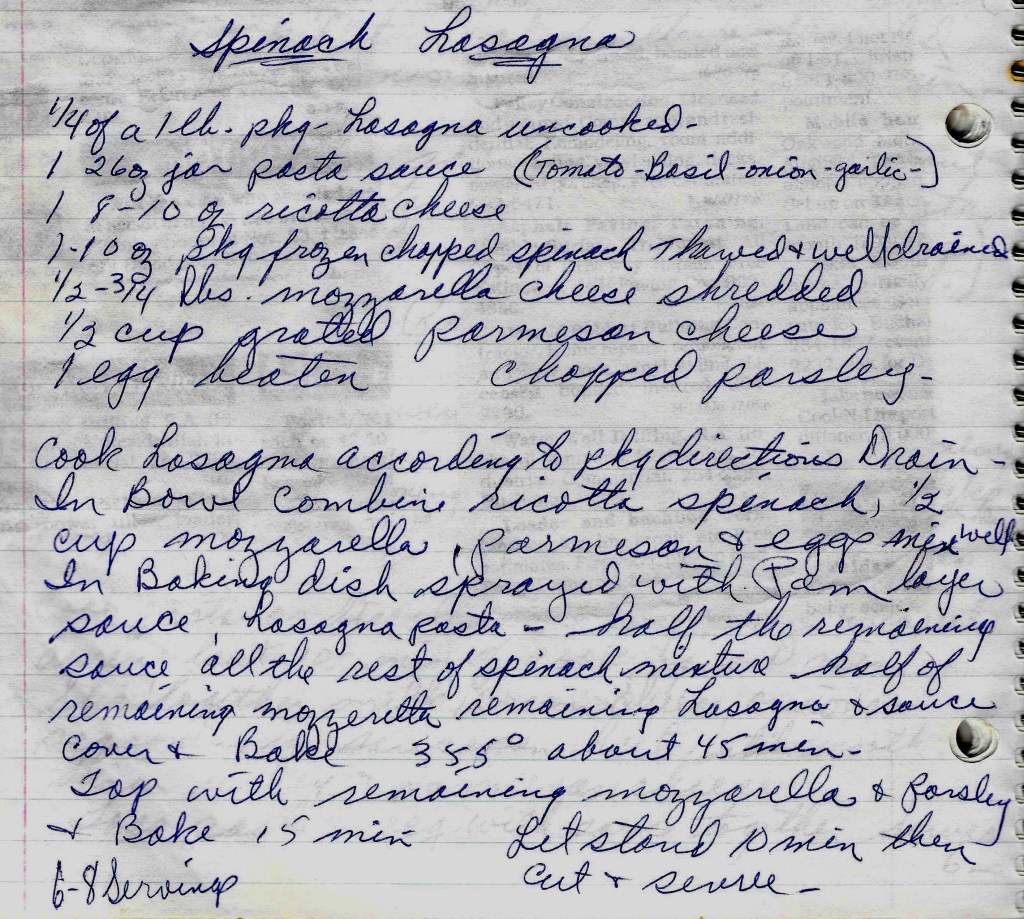 Spinach Lasagna
1/4 of a 1 lb. pkg- Lasagna uncooked-
1 26oz jar pasta sauce (Tomato-Basil-onion-garlic-)
1 8-10 oz ricotta cheese
1-10 oz pkg frozen chopped spinach Thawed & well drained
1/2-3/4 lbs. mozzarella cheese shredded
1/3 cup grated parmeson cheese
1 egg beaten chopped parsley-
Cook Lasagna according to pkg directions Drain-
In Bowl Combine ricotta spinach, 1/2
cup mozzarella, parmeson & egg mix well
In Baking dish sprayed with Pam layer
sauce, Lasagna pasta - half the remaining
sauce all the rest of spinach mixture half of
remaining mozzeretta remaining Lasagna & sauce
Cover & Bake 355° about 45 min-
Top with remaining mozzarella & Parsley
& Bake 15 min Let stand 10 min then
6-8 Servings cut & serve-